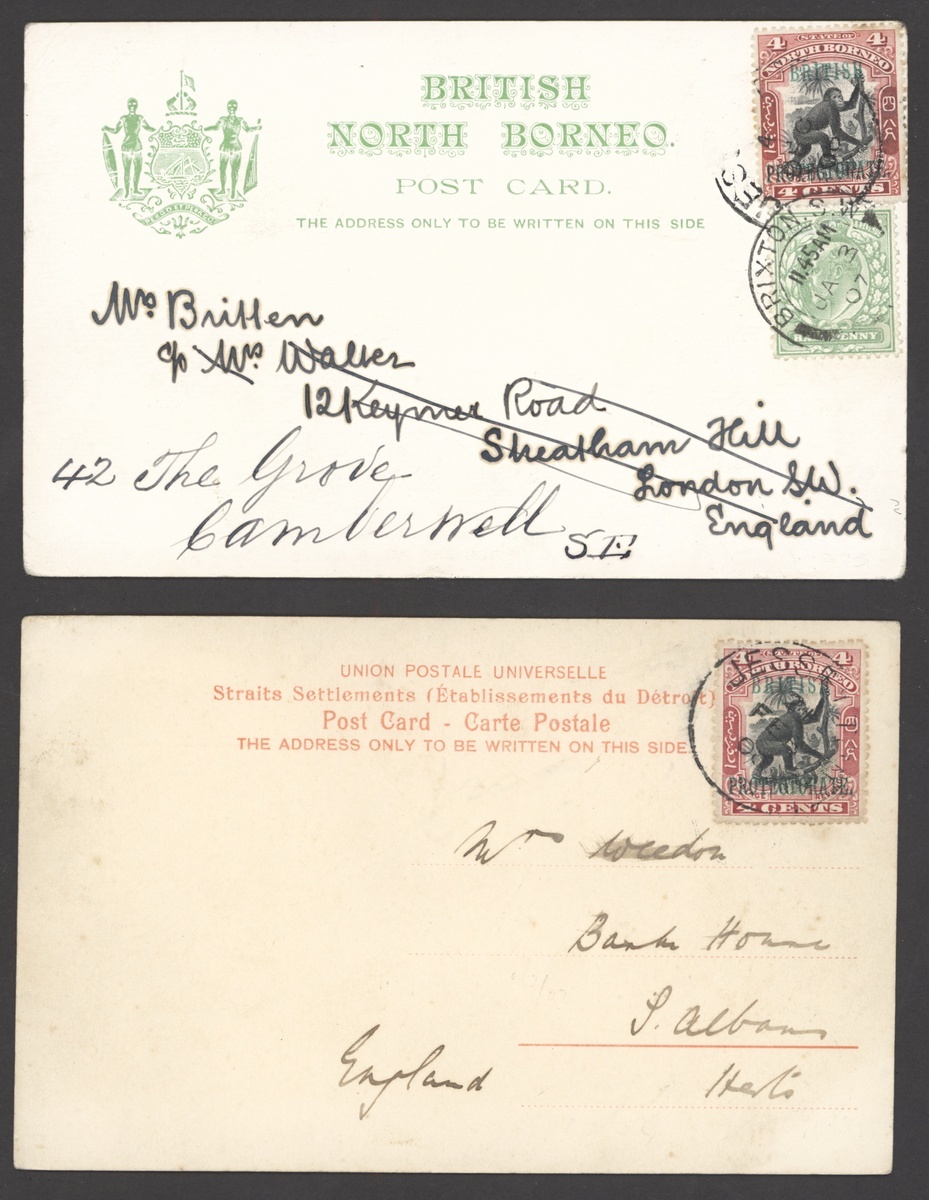 BRITISH
NORTH BORNEO.
POST CARD.
THE ADDRESS ONLY TO BE WRITTEN ON THIS SIDE
4 STATE OF 4
NORTH BORNEO
BRITISH
PROTECTORATE.
4 CENTS
BRIXTON
11.45AM
JA 3
07
Mrs Britten
c/o Mrs Walker
12 Keymer Road
Streatham Hill
London S.W.
England
42 The Grove
Camberwell
S E
UNION POSTALE UNIVERSELLE
Straits Settlements (Établissements du Détroit)
Post Card - Carte Postale
THE ADDRESS ONLY TO BE WRITTEN ON THIS SIDE
4
NORTH BORNEO
BRITISH
PROTECTORATE.
4 CENTS
JESSELTON
Mrs Weedon
Bank House
S. Albans
Herts
England